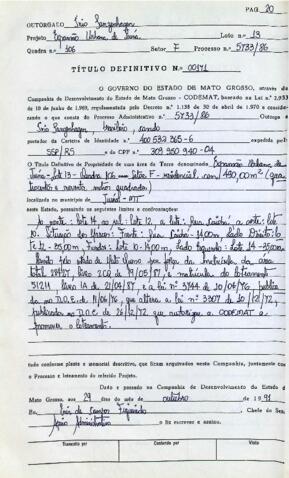 PAG 20
OUTORGADO Írio Langenhagen
Projeto Expansão Urbana de Juína Lote n.º 13
Quadra n.º 106 Setor F Processo n.º 5733/86
TÍTULO DEFINITIVO N.º 00171
O GOVERNO DO ESTADO DE MATO GROSSO, através
Companhia de Desenvolvimento do Estado de Mato Grosso - CODEMAT, baseado na Lei n.º 2.953
de 10 de junho de 1969, regulamentado pelo Decreto n.º 1.138 de 30 de abril de 1970 e considerando
que o consta do Processo Administrativo n.º 5733/86 Outorga a
brasileiro, casado
portador da Carteira de Identidade n.º 400 532 365-6
SSP/RS do CPF n.º 303 950 940-04
O Título Definitivo de Propriedade de sua área de Terra denominada Expansão Urbana de
Juína - Lote 13 - Quadra 106 Setor F - residencial, com 490,00 m² (qua
trocentos e noventa metros quadrados)
localizado no município de Juína - MT
neste Estado, possuindo os seguintes limites e confrontações:
ao norte: lote 14 ao sul: lote 12, a leste: Rua a oeste: lote
10. Frente: Rua 14,00m. Lado Direito: lo
te 12 - 35,00m, Fundos: lote 10 - 14,00m. Lado Esquerdo: lote 14 - 35,00m
por força da matrícula da área
total livro 2 de 19/05/87, e matrícula do loteamento
livro de 21/04/87 e a lei nº 3744 de 10/06/76, publica
da no D.O.E. de 11/06/76, que altera a lei nº 3307 de 10/12/72,
publicada no D.O.E de 26/12/72 que autoriza a CODEMAT a
promover o loteamento.
tudo conforme planta e memorial descritivo, que ficam arquivados nesta Companhia, juntamente com
o Processo e loteamento do referido Projeto.
Dado e passado na Companhia de Desenvolvimento do Estado d
Mato Grosso, aos 29 dias do mês de outubro de 1991
Eu, Chefe do Ser
Administrativo o fiz escrever e assino.
Transcrito por Conferido por Visto